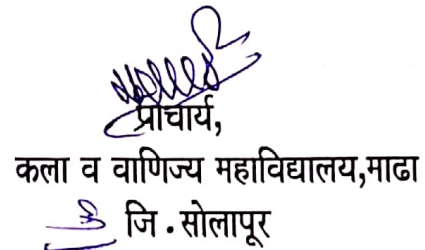 प्राचार्य,
कला व वाणिज्य महाविद्यालय,माढा
जि.सोलापूर